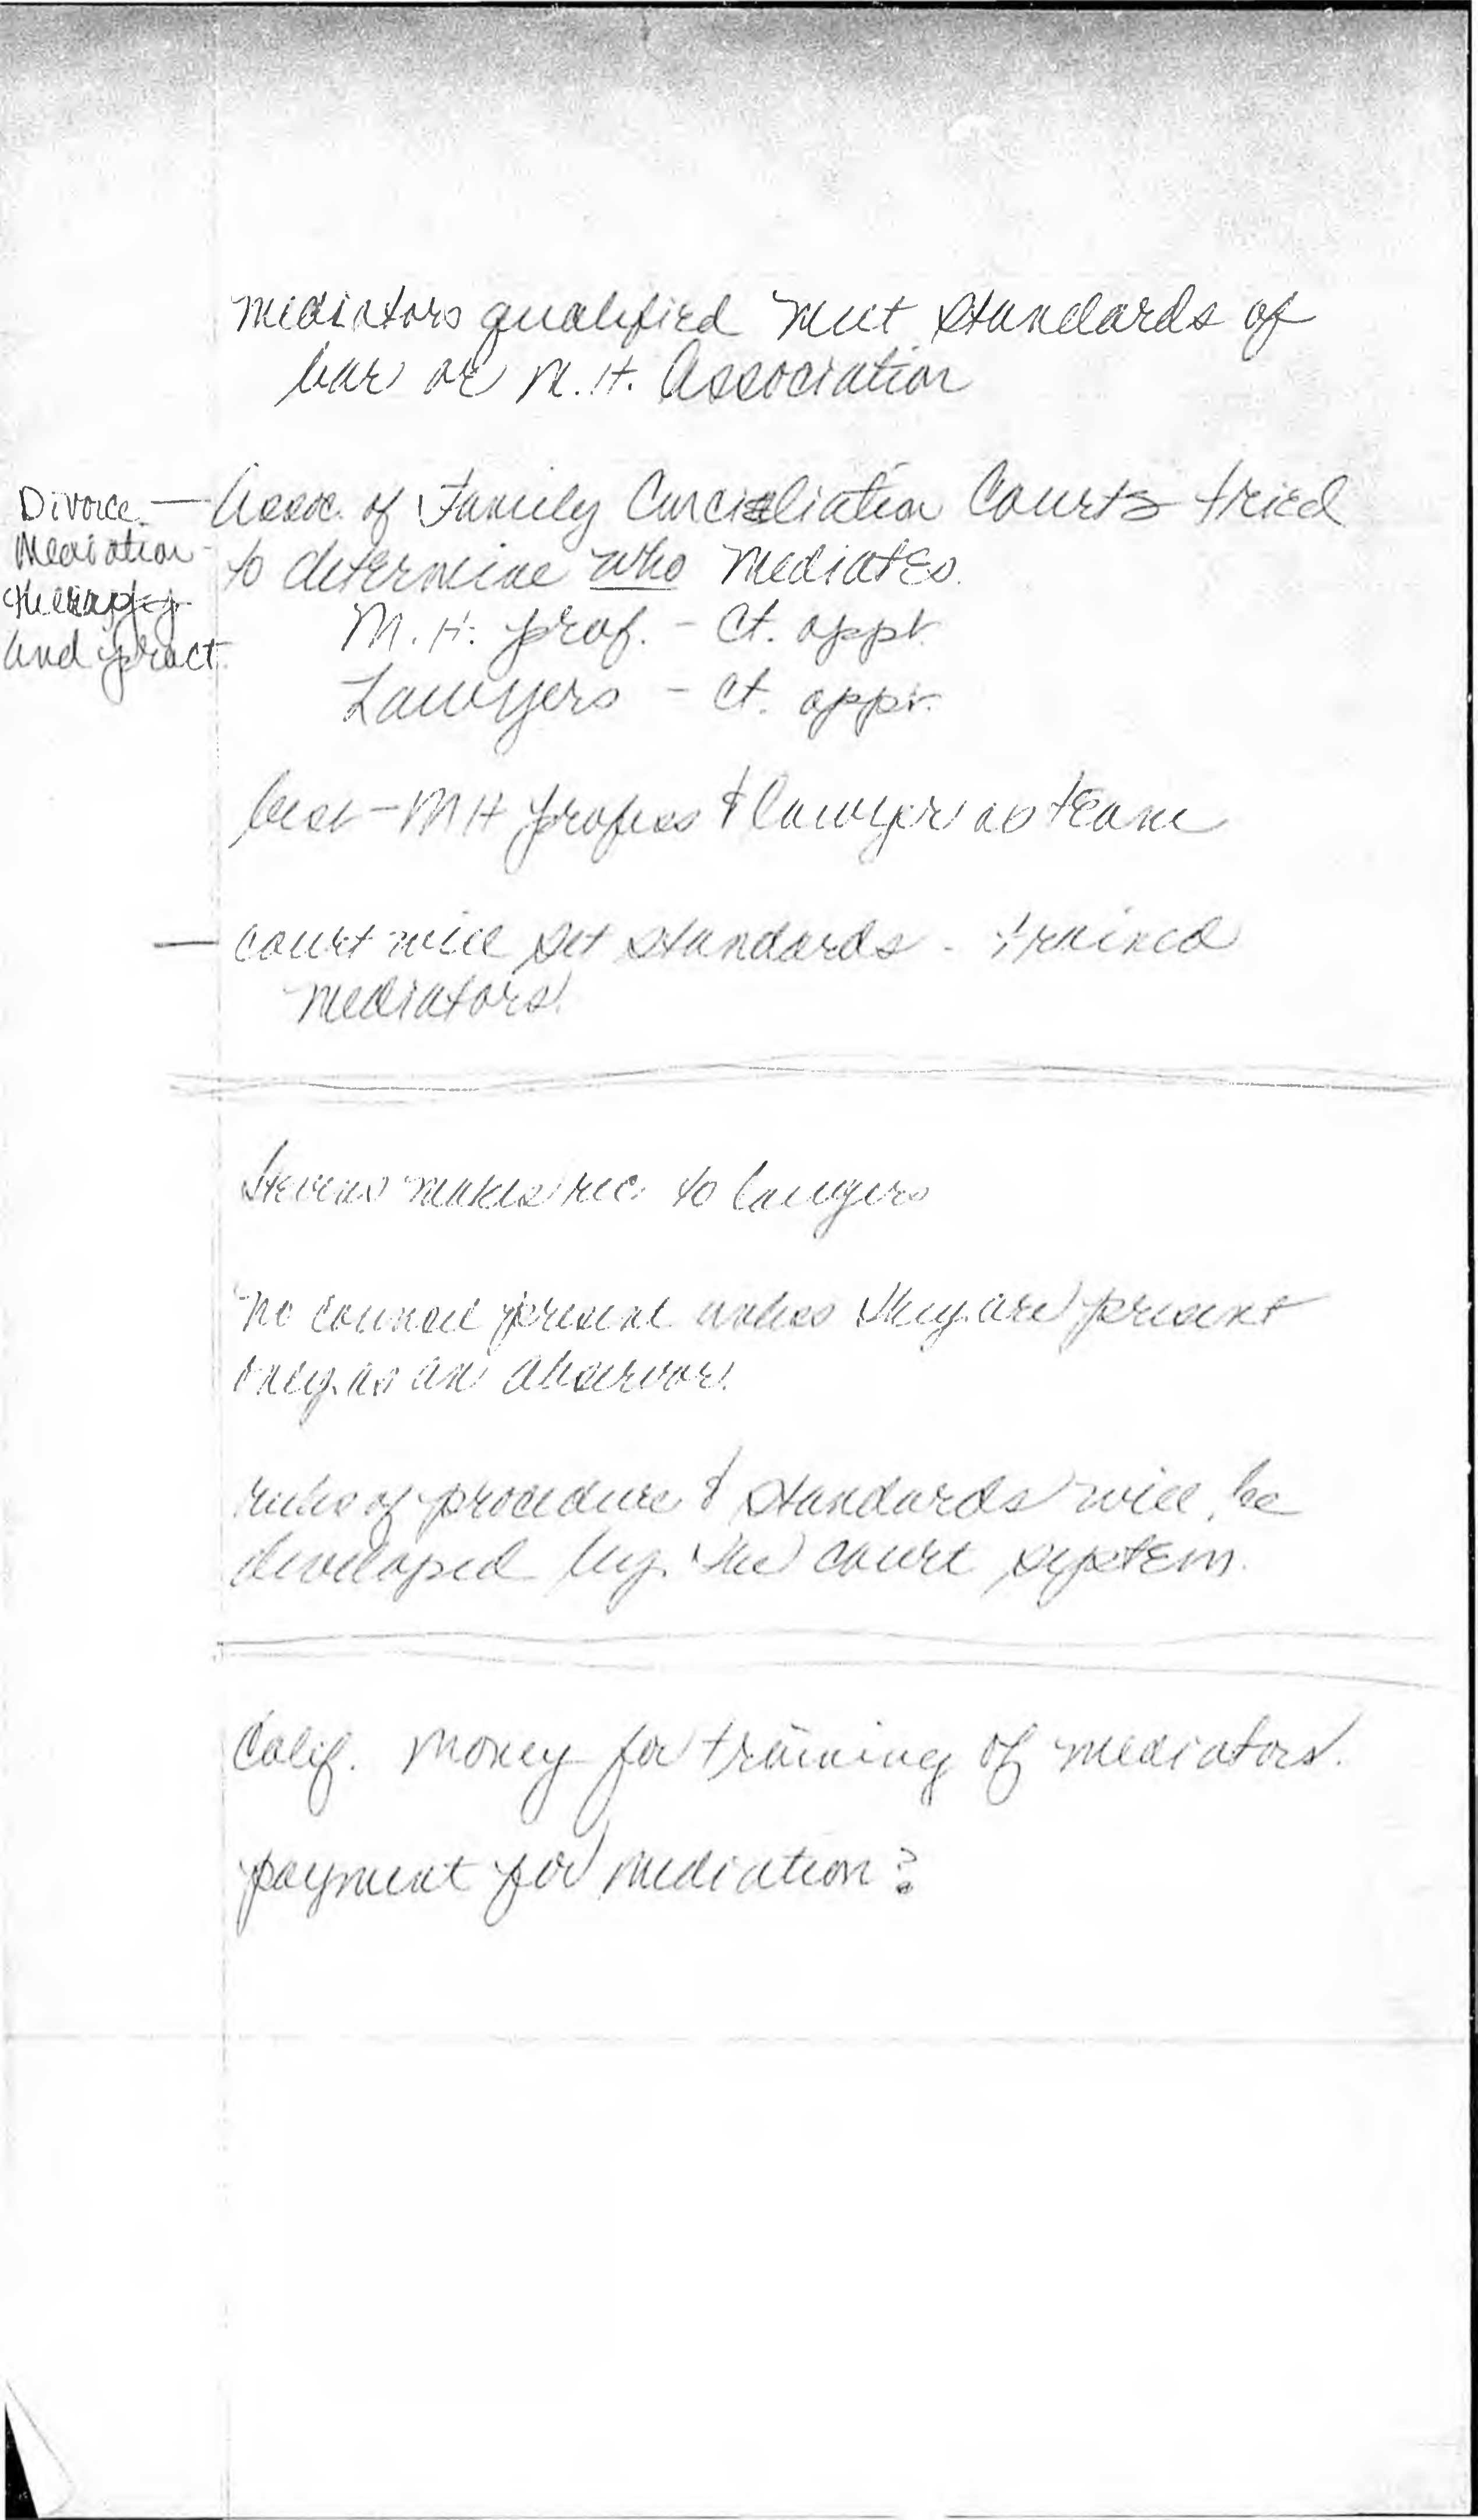 mediators qualified meet standards of
bar or M.H. Association
Divorce
Mediation
therapy
and pract.
— Assoc. of Family Conciliation Courts tried
to determine who mediates.
M.H. prof. - Ct. appt.
Lawyers - Ct. appt.
best - MH profess & lawyer as team
— court will set standards - trained
mediators.
Stevens makes rec. to lawyers
no council present unless they are present
only as an observor.
rules of procedure & standards will be
developed by the court system.
Calif. money for training of mediators.
payment for mediation?